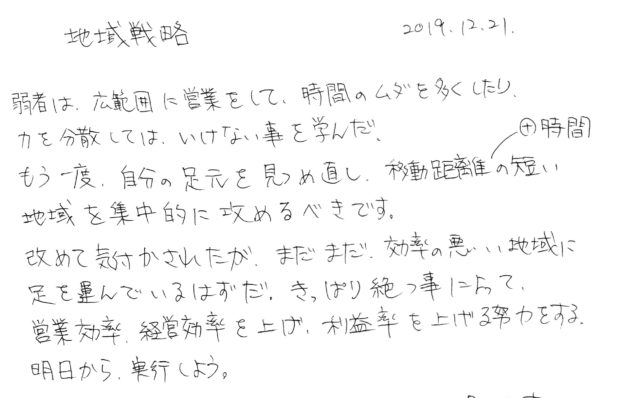 地域戦略
2019.12.21.
弱者は、広範囲に営業をして、時間のムダを多くしたり、
力を分散しては、いけない事を学んだ。
⊕時間
もう一度、自分の足元を見つめ直し、移動距離の短い
地域を集中的に攻めるべきです。
改めて気付かされたが、まだまだ、効率の悪い地域に
足を運んでいるはずだ。きっぱり絶つ事によって、
営業効率、経営効率を上げ、利益率を上げる努力をする。
明日から、実行しよう。